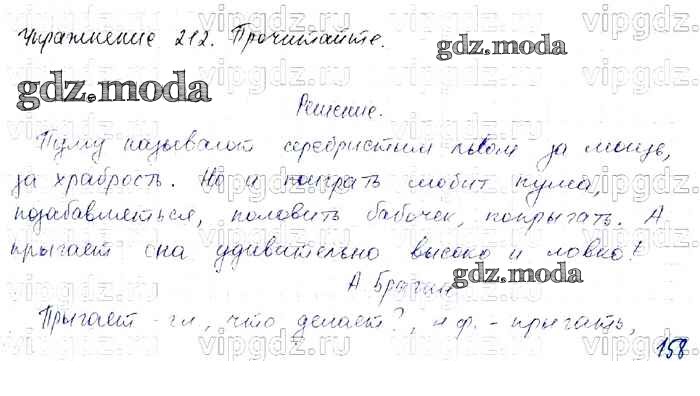 Упражнение 212. Прочитайте.
gdz.moda
gdz.moda
Решение.
Пуму называют серебристым львом за мощь,
за храбрость. Но и поиграть любит пума,
позабавляться, половить бабочек, попрыгать. А
прыгает она удивительно высоко и ловко!
А. Брагин
gdz.moda
Прыгает - гл., что делает?, н.ф. - прыгать,
158
vipgdz.ru